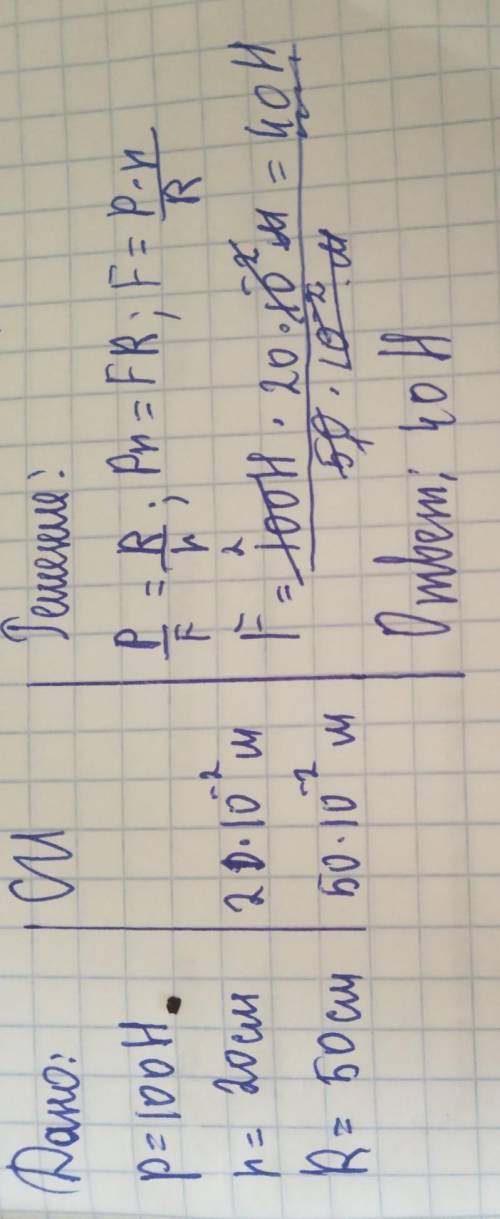 Дано:
p=100Н
r= 20см
R= 50см
СИ
20·10⁻² м
50·10⁻² м
Решение:
P/F = R/r; Pr=FR; F= P·r/R
F= 100Н · 20·10⁻² м / 50·10⁻²·м = 40Н
Ответ: 40Н